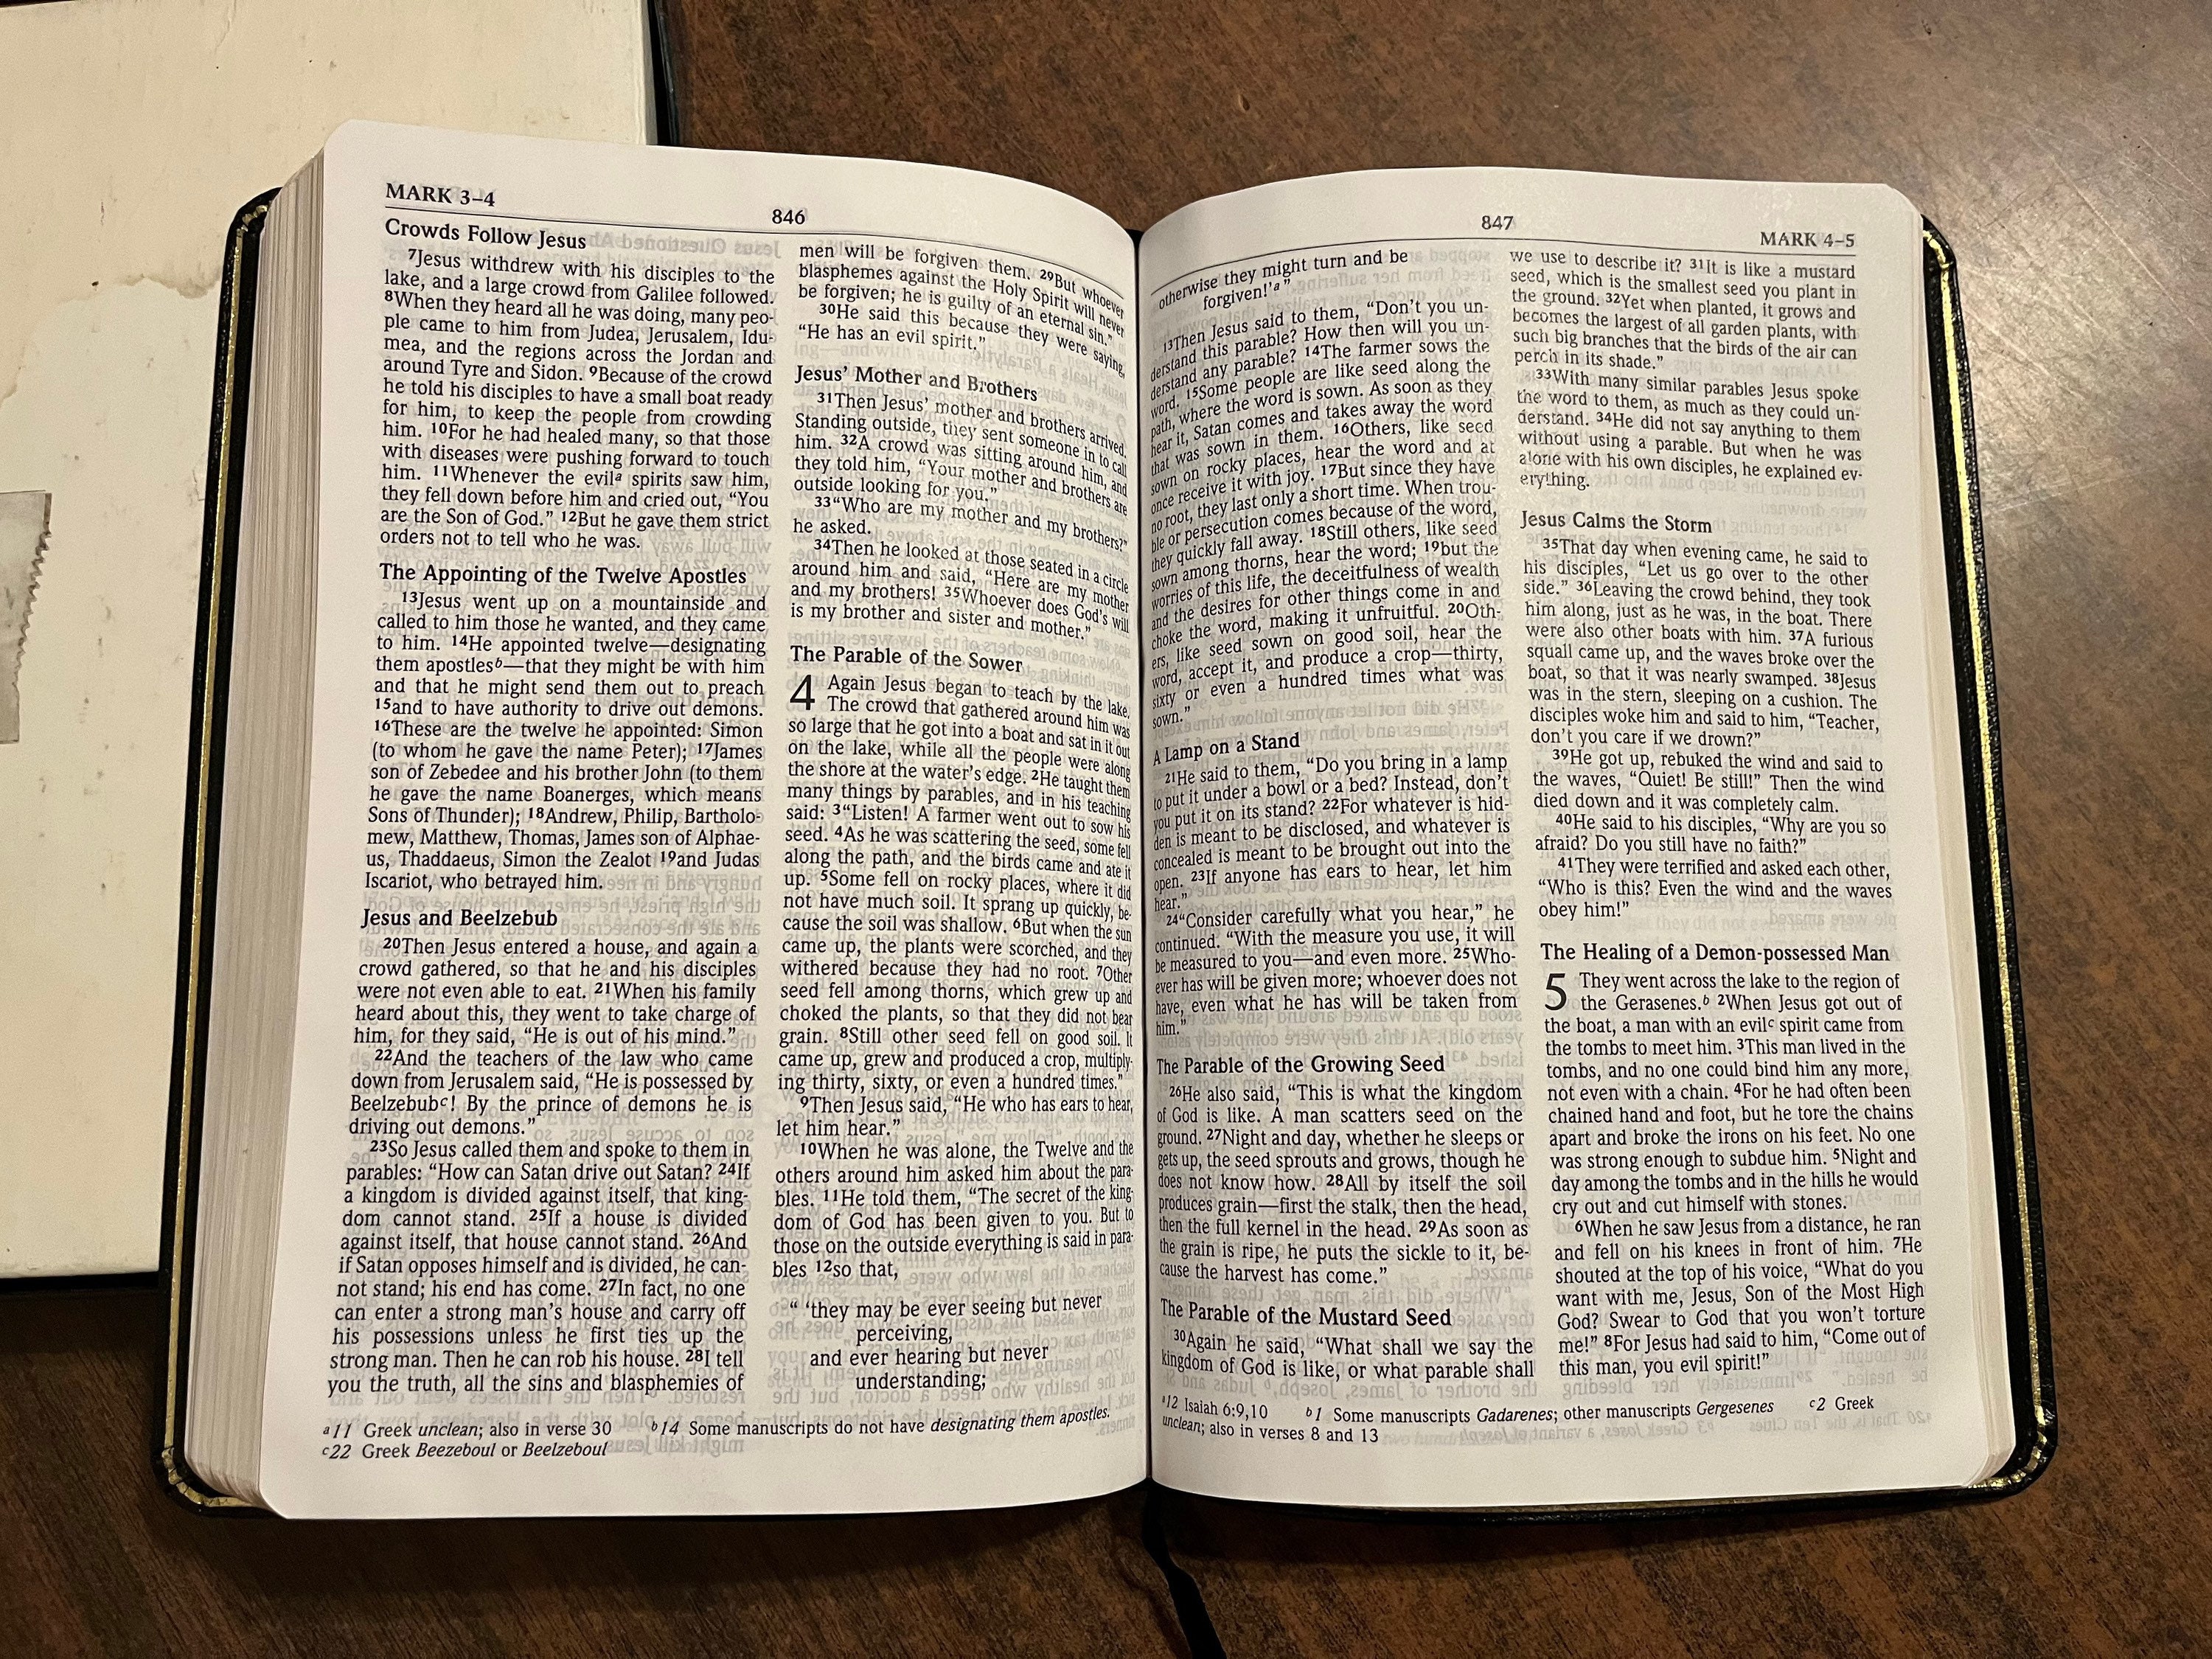 MARK 3–4
846
Crowds Follow Jesus
7Jesus withdrew with his disciples to the
lake, and a large crowd from Galilee followed.
8When they heard all he was doing, many peo-
ple came to him from Judea, Jerusalem, Idu-
mea, and the regions across the Jordan and
around Tyre and Sidon. 9Because of the crowd
he told his disciples to have a small boat ready
for him, to keep the people from crowding
him. 10For he had healed many, so that those
with diseases were pushing forward to touch
him. 11Whenever the evila spirits saw him,
they fell down before him and cried out, “You
are the Son of God.” 12But he gave them strict
orders not to tell who he was.
The Appointing of the Twelve Apostles
13Jesus went up on a mountainside and
called to him those he wanted, and they came
to him. 14He appointed twelve—designating
them apostlesb—that they might be with him
and that he might send them out to preach
15and to have authority to drive out demons.
16These are the twelve he appointed: Simon
(to whom he gave the name Peter); 17James
son of Zebedee and his brother John (to them
he gave the name Boanerges, which means
Sons of Thunder); 18Andrew, Philip, Bartholo-
mew, Matthew, Thomas, James son of Alphae-
us, Thaddaeus, Simon the Zealot 19and Judas
Iscariot, who betrayed him.
Jesus and Beelzebub
20Then Jesus entered a house, and again a
crowd gathered, so that he and his disciples
were not even able to eat. 21When his family
heard about this, they went to take charge of
him, for they said, “He is out of his mind.”
22And the teachers of the law who came
down from Jerusalem said, “He is possessed by
Beelzebubc! By the prince of demons he is
driving out demons.”
23So Jesus called them and spoke to them in
parables: “How can Satan drive out Satan? 24If
a kingdom is divided against itself, that king-
dom cannot stand. 25If a house is divided
against itself, that house cannot stand. 26And
if Satan opposes himself and is divided, he can-
not stand; his end has come. 27In fact, no one
can enter a strong man’s house and carry off
his possessions unless he first ties up the
strong man. Then he can rob his house. 28I tell
you the truth, all the sins and blasphemies of
men will be forgiven them. 29But whoever
blasphemes against the Holy Spirit will never
be forgiven; he is guilty of an eternal sin.”
30He said this because they were saying,
“He has an evil spirit.”
Jesus’ Mother and Brothers
31Then Jesus’ mother and brothers arrived.
Standing outside, they sent someone in to call
him. 32A crowd was sitting around him, and
they told him, “Your mother and brothers are
outside looking for you.”
33“Who are my mother and my brothers?”
he asked.
34Then he looked at those seated in a circle
around him and said, “Here are my mother
and my brothers! 35Whoever does God’s will
is my brother and sister and mother.”
The Parable of the Sower
4 Again Jesus began to teach by the lake.
The crowd that gathered around him was
so large that he got into a boat and sat in it out
on the lake, while all the people were along
the shore at the water’s edge. 2He taught them
many things by parables, and in his teaching
said: 3“Listen! A farmer went out to sow his
seed. 4As he was scattering the seed, some fell
along the path, and the birds came and ate it
up. 5Some fell on rocky places, where it did
not have much soil. It sprang up quickly, be-
cause the soil was shallow. 6But when the sun
came up, the plants were scorched, and they
withered because they had no root. 7Other
seed fell among thorns, which grew up and
choked the plants, so that they did not bear
grain. 8Still other seed fell on good soil. It
came up, grew and produced a crop, multiply-
ing thirty, sixty, or even a hundred times.”
9Then Jesus said, “He who has ears to hear,
let him hear.”
10When he was alone, the Twelve and the
others around him asked him about the para-
bles. 11He told them, “The secret of the king-
dom of God has been given to you. But to
those on the outside everything is said in para-
bles 12so that,
“ ‘they may be ever seeing but never
perceiving,
and ever hearing but never
understanding;
a11 Greek unclean; also in verse 30 b14 Some manuscripts do not have designating them apostles.
c22 Greek Beezeboul or Beelzeboul
847
MARK 4–5
otherwise they might turn and be
forgiven!’a ”
13Then Jesus said to them, “Don’t you un-
derstand this parable? How then will you un-
derstand any parable? 14The farmer sows the
word. 15Some people are like seed along the
path, where the word is sown. As soon as they
hear it, Satan comes and takes away the word
that was sown in them. 16Others, like seed
sown on rocky places, hear the word and at
once receive it with joy. 17But since they have
no root, they last only a short time. When trou-
ble or persecution comes because of the word,
they quickly fall away. 18Still others, like seed
sown among thorns, hear the word; 19but the
worries of this life, the deceitfulness of wealth
and the desires for other things come in and
choke the word, making it unfruitful. 20Oth-
ers, like seed sown on good soil, hear the
word, accept it, and produce a crop—thirty,
sixty or even a hundred times what was
sown.”
A Lamp on a Stand
21He said to them, “Do you bring in a lamp
to put it under a bowl or a bed? Instead, don’t
you put it on its stand? 22For whatever is hid-
den is meant to be disclosed, and whatever is
concealed is meant to be brought out into the
open. 23If anyone has ears to hear, let him
hear.”
24“Consider carefully what you hear,” he
continued. “With the measure you use, it will
be measured to you—and even more. 25Who-
ever has will be given more; whoever does not
have, even what he has will be taken from
him.”
The Parable of the Growing Seed
26He also said, “This is what the kingdom
of God is like. A man scatters seed on the
ground. 27Night and day, whether he sleeps or
gets up, the seed sprouts and grows, though he
does not know how. 28All by itself the soil
produces grain—first the stalk, then the head,
then the full kernel in the head. 29As soon as
the grain is ripe, he puts the sickle to it, be-
cause the harvest has come.”
The Parable of the Mustard Seed
30Again he said, “What shall we say the
kingdom of God is like, or what parable shall
we use to describe it? 31It is like a mustard
seed, which is the smallest seed you plant in
the ground. 32Yet when planted, it grows and
becomes the largest of all garden plants, with
such big branches that the birds of the air can
perch in its shade.”
33With many similar parables Jesus spoke
the word to them, as much as they could un-
derstand. 34He did not say anything to them
without using a parable. But when he was
alone with his own disciples, he explained ev-
erything.
Jesus Calms the Storm
35That day when evening came, he said to
his disciples, “Let us go over to the other
side.” 36Leaving the crowd behind, they took
him along, just as he was, in the boat. There
were also other boats with him. 37A furious
squall came up, and the waves broke over the
boat, so that it was nearly swamped. 38Jesus
was in the stern, sleeping on a cushion. The
disciples woke him and said to him, “Teacher,
don’t you care if we drown?”
39He got up, rebuked the wind and said to
the waves, “Quiet! Be still!” Then the wind
died down and it was completely calm.
40He said to his disciples, “Why are you so
afraid? Do you still have no faith?”
41They were terrified and asked each other,
“Who is this? Even the wind and the waves
obey him!”
The Healing of a Demon-possessed Man
5 They went across the lake to the region of
the Gerasenes.b 2When Jesus got out of
the boat, a man with an evilc spirit came from
the tombs to meet him. 3This man lived in the
tombs, and no one could bind him any more,
not even with a chain. 4For he had often been
chained hand and foot, but he tore the chains
apart and broke the irons on his feet. No one
was strong enough to subdue him. 5Night and
day among the tombs and in the hills he would
cry out and cut himself with stones.
6When he saw Jesus from a distance, he ran
and fell on his knees in front of him. 7He
shouted at the top of his voice, “What do you
want with me, Jesus, Son of the Most High
God? Swear to God that you won’t torture
me!” 8For Jesus had said to him, “Come out of
this man, you evil spirit!”
a12 Isaiah 6:9,10 b1 Some manuscripts Gadarenes; other manuscripts Gergesenes c2 Greek
unclean; also in verses 8 and 13